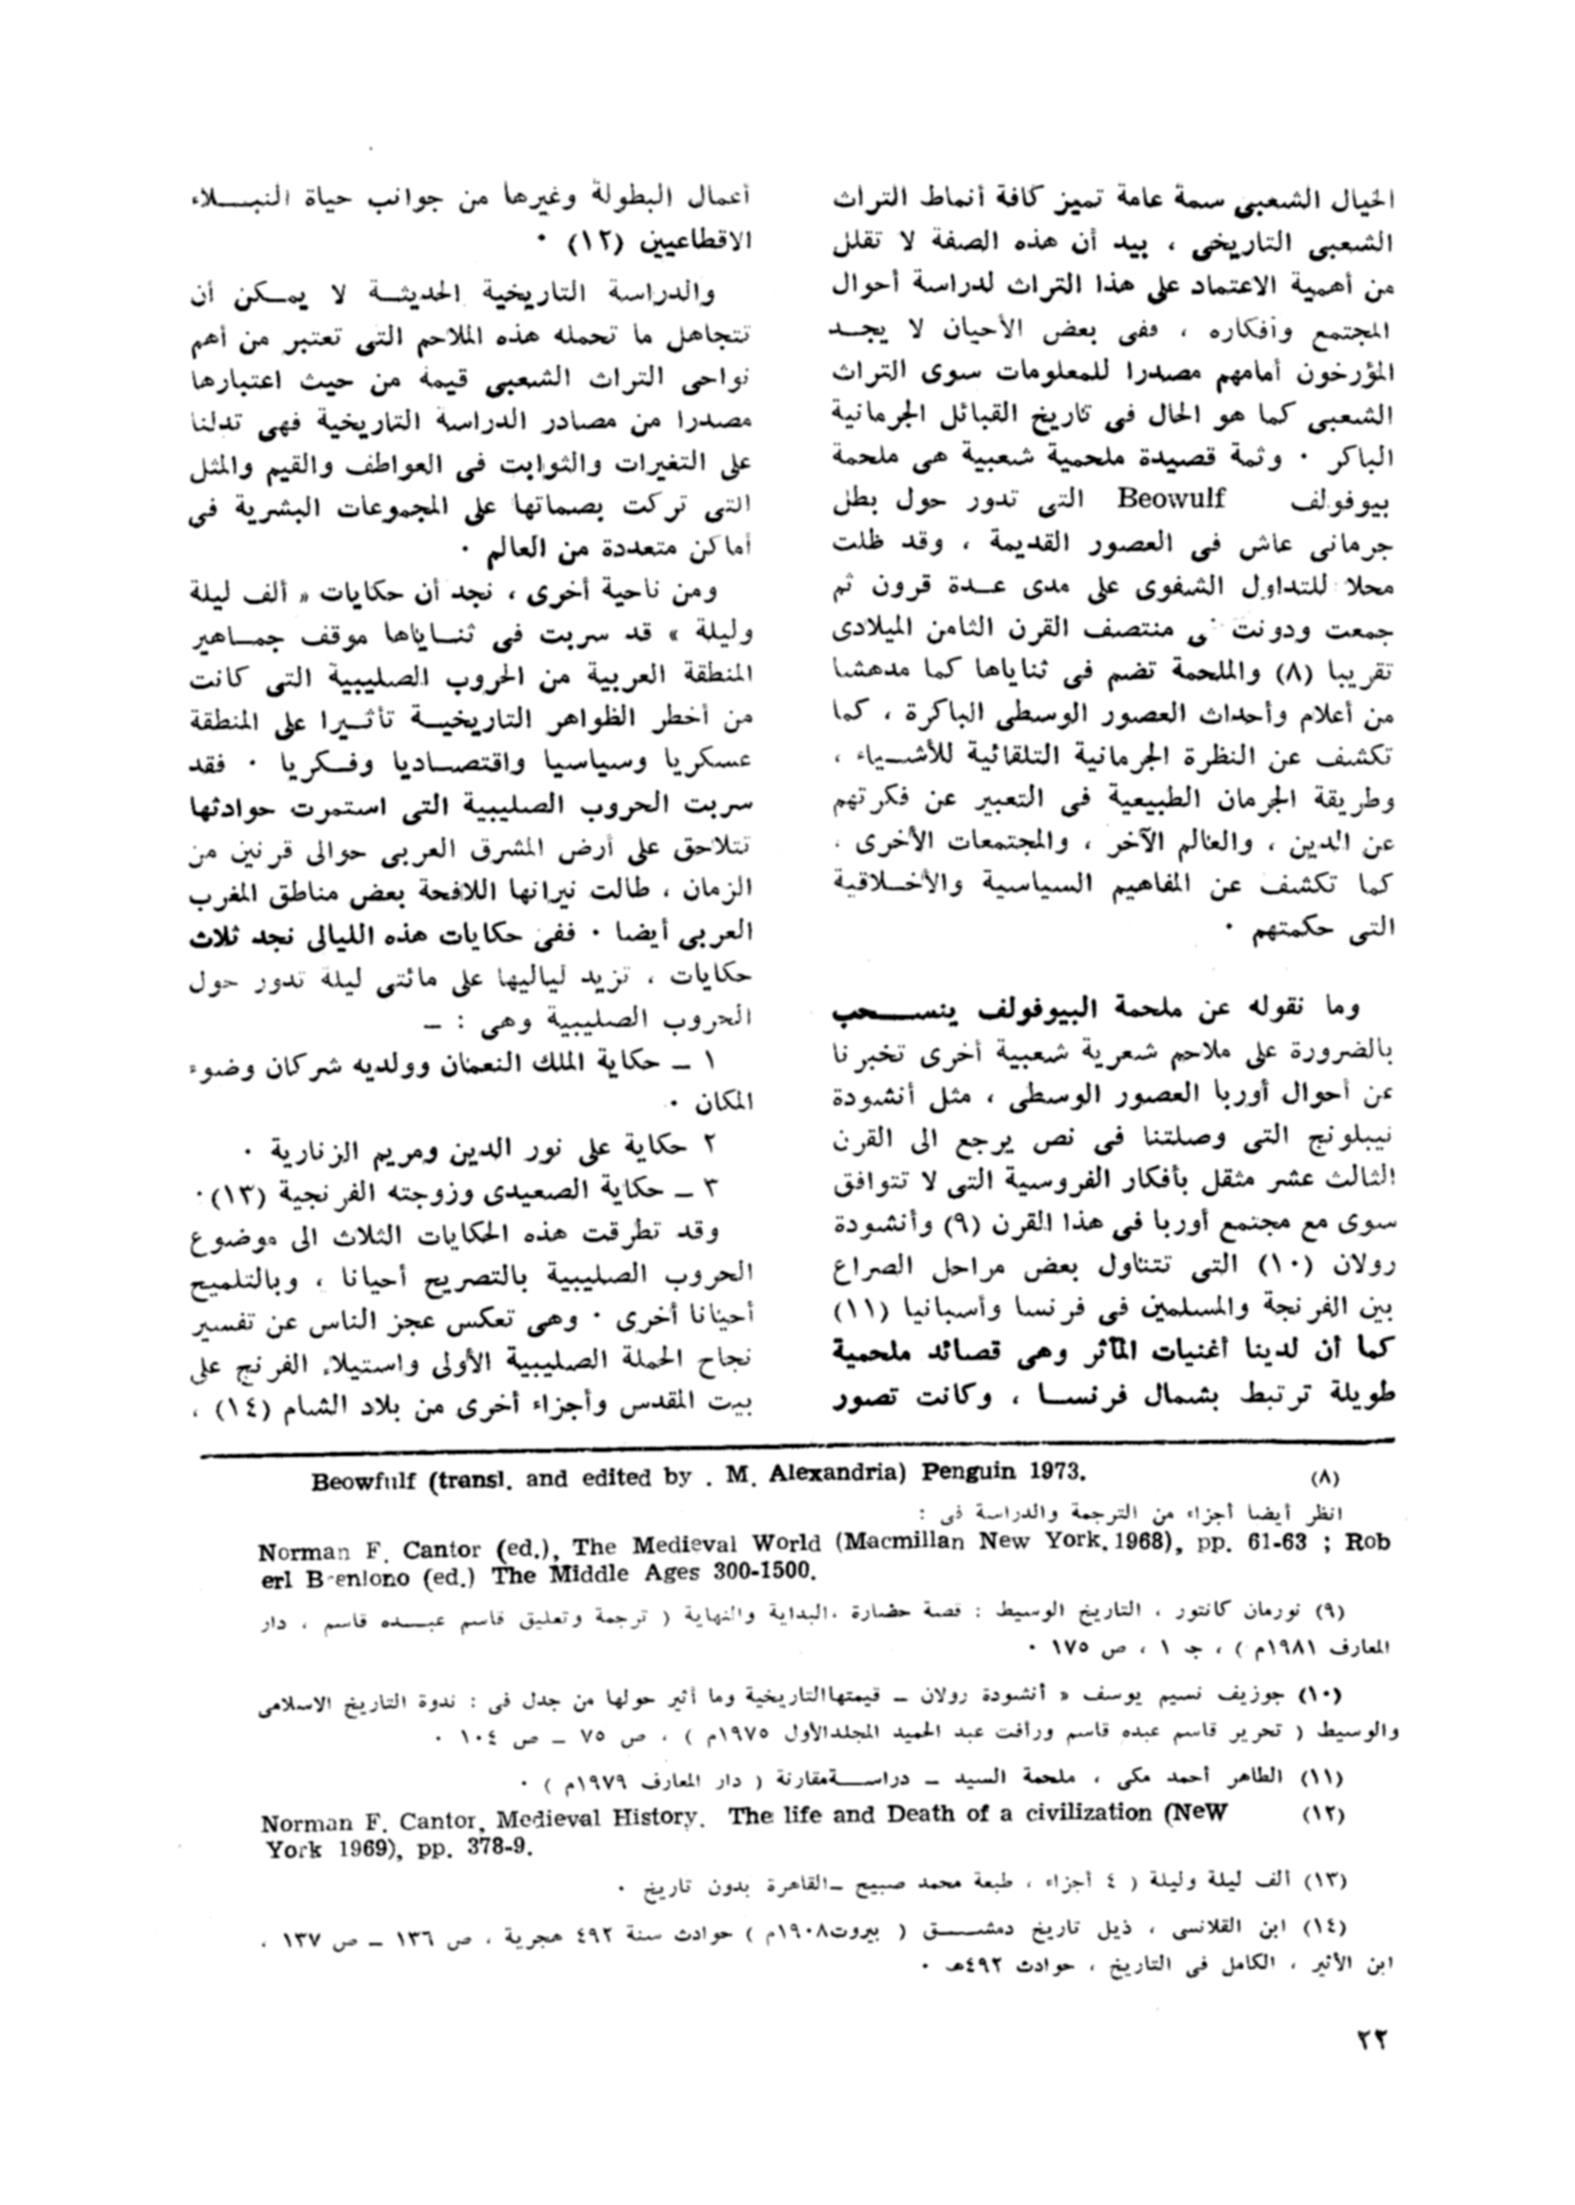 الخيال الشعبى سمة عامة تميز كافة أنماط التراث
الشعبى التاريخى ، بيد أن هذه الصفة لا تقلل
من أهمية الاعتماد على هذا التراث لدراسة أحوال
المجتمع وأفكاره ، ففى بعض الأحيان لا يجد
المؤرخون أمامهم مصدرا للمعلومات سوى التراث
الشعبى كما هو الحال فى تاريخ القبائل الجرمانية
الباكر . وثمة قصيدة ملحمية شعبية هى ملحمة
بيوفولف Beowulf التى تدور حول بطل
جرمانى عاش فى العصور القديمة ، وقد ظلت
محلا للتداول الشفوى على مدى عدة قرون ثم
جمعت ودونت فى منتصف القرن الثامن الميلادى
تقريبا (٨) والملحمة تضم فى ثناياها كما مدهشا
من أعلام وأحداث العصور الوسطى الباكرة ، كما
تكشف عن النظرة الجرمانية التلقائية للأشياء ،
وطريقة الجرمان الطبيعية فى التعبير عن فكرتهم
عن الدين ، والعالم الآخر ، والمجتمعات الأخرى .
كما تكشف عن المفاهيم السياسية والأخلاقية
التى حكمتهم .
وما نقوله عن ملحمة البيوفولف ينسحب
بالضرورة على ملاحم شعرية شعبية أخرى تخبرنا
عن أحوال أوربا العصور الوسطى ، مثل أنشودة
نيبلونج التى وصلتنا فى نص يرجع الى القرن
الثالث عشر مثقل بأفكار الفروسية التى لا تتوافق
سوى مع مجتمع أوربا فى هذا القرن (٩) وأنشودة
رولان (١٠) التى تتناول بعض مراحل الصراع
بين الفرنجة والمسلمين فى فرنسا وأسبانيا (١١)
كما أن لدينا أغنيات المآثر وهى قصائد ملحمية
طويلة ترتبط بشمال فرنسا ، وكانت تصور
أعمال البطولة وغيرها من جوانب حياة النبلاء
الاقطاعيين (١٢) .
والدراسة التاريخية الحديثة لا يمكن أن
تتجاهل ما تحمله هذه الملاحم التى تعتبر من أهم
نواحى التراث الشعبى قيمة من حيث اعتبارها
مصدرا من مصادر الدراسة التاريخية فهى تدلنا
على التغيرات والثوابت فى العواطف والقيم والمثل
التى تركت بصماتها على المجموعات البشرية فى
أماكن متعددة من العالم .
ومن ناحية أخرى ، نجد أن حكايات « ألف ليلة
وليلة » قد سربت فى ثناياها موقف جماهير
المنطقة العربية من الحروب الصليبية التى كانت
من أخطر الظواهر التاريخية تأثيرا على المنطقة
عسكريا وسياسيا واقتصاديا وفكريا . فقد
سربت الحروب الصليبية التى استمرت حوادثها
تتلاحق على أرض المشرق العربى حوالى قرنين من
الزمان ، طالت نيرانها اللافحة بعض مناطق المغرب
العربى أيضا . ففى حكايات هذه الليالى نجد ثلاث
حكايات ، تزيد لياليها على مائتى ليلة تدور حول
الحروب الصليبية وهى : –
١ – حكاية الملك النعمان وولديه شركان وضوء
المكان .
٢ حكاية على نور الدين ومريم الزنارية .
٣ – حكاية الصعيدى وزوجته الفرنجية (١٣) .
وقد تطرقت هذه الحكايات الثلاث الى موضوع
الحروب الصليبية بالتصريح أحيانا ، وبالتلميح
أحيانا أخرى . وهى تعكس عجز الناس عن تفسير
نجاح الحملة الصليبية الأولى واستيلاء الفرنج على
بيت المقدس وأجزاء أخرى من بلاد الشام (١٤) ،
(٨) Beowfulf (transl. and edited by . M. Alexandria) Penguin 1973.
انظر أيضا أجزاء من الترجمة والدراسة فى :
Norman F. Cantor (ed.), The Medieval World (Macmillan New York. 1968), pp. 61-63 ; Rob
erl (ed.) The Middle Ages 300-1500.
(٩) نورمان كانتور ، التاريخ الوسيط : قصة حضارة ، البداية والنهاية ( ترجمة وتعليق قاسم عبده قاسم ، دار
المعارف ١٩٨١م ) ، جـ ١ ، ص ١٧٥ .
(١٠) جوزيف نسيم يوسف « أنشودة رولان – قيمتها التاريخية وما أثير حولها من جدل فى : ندوة التاريخ الاسلامى
والوسيط ( تحرير قاسم عبده قاسم ورأفت عبد الحميد المجلد الأول ١٩٧٥م ) ، ص ٧٥ – ص ١٠٤ .
(١١) الطاهر أحمد مكى ، ملحمة السيد – دراسة مقارنة ( دار المعارف ١٩٧٩م ) .
(١٢) Norman F. Cantor, Medieval History. The life and Death of a civilization (NeW
York 1969), pp. 378-9.
(١٣) ألف ليلة وليلة ( ٤ أجزاء ، طبعة محمد صبيح – القاهرة بدون تاريخ .
(١٤) ابن القلانسى ، ذيل تاريخ دمشق ( بيروت ١٩٠٨م ) حوادث سنة ٤٩٢ هجرية ، ص ١٣٦ – ص ١٣٧ ،
ابن الأثير ، الكامل فى التاريخ ، حوادث ٤٩٢هـ .
٢٢